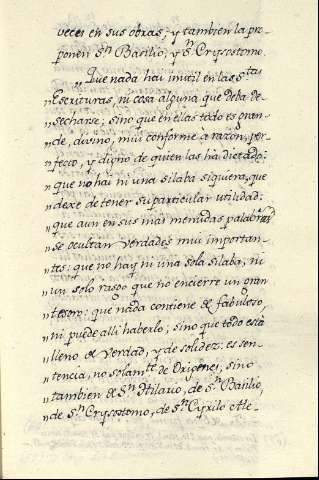 veces en sus obras; y tambien la pro-
ponen Sn Basilio, y Sn Crysostomo.
Que nada hai inutil en las Stas
„Escrituras, ni cosa alguna que deba de-
„secharse; sino que en ellas todo es gran-
„de, divino, mui conforme à razon, per-
„fecto, y digno de quien las ha dictado:
„que no hai ni una silaba siquiera, que
„dexe de tener su particular utilidad:
„que aun en sus mas menudas palabras
„se ocultan verdades mui importan-
„tes: que no hay ni una sola silaba, ni
„un solo rasgo que no encierre un gran
„tesoro: que nada contiene de fabuloso,
„ni puede alli haberlo; sino que todo està
„lleno de verdad, y de solidez: es sen-
„tencia, no solamte de Origenes, sino
„tambien de Sn Hilario, de Sn Basilio,
„de Sn Crysostomo, de Sn Cyrilo Ale-